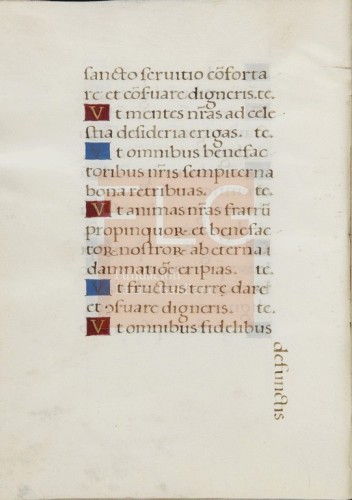 sancto seruitio cōforta
re et cōſuare digneris. te.
Vt mentes nr̄as ad cele
stia desideria erigas. te.
Vt omnibus benefac
toribus nr̄is sempiterna
bona retribuas. te.
Vt animas nr̄as fratrū
propinquoꝝ et benefac
toꝝ nostroꝝ ab eterna
damnatiōe eripias. te.
Vt fructus terrę dare
et ꝯſuare digneris. te.
Vt omnibus fidelibus
defunctis
FLG